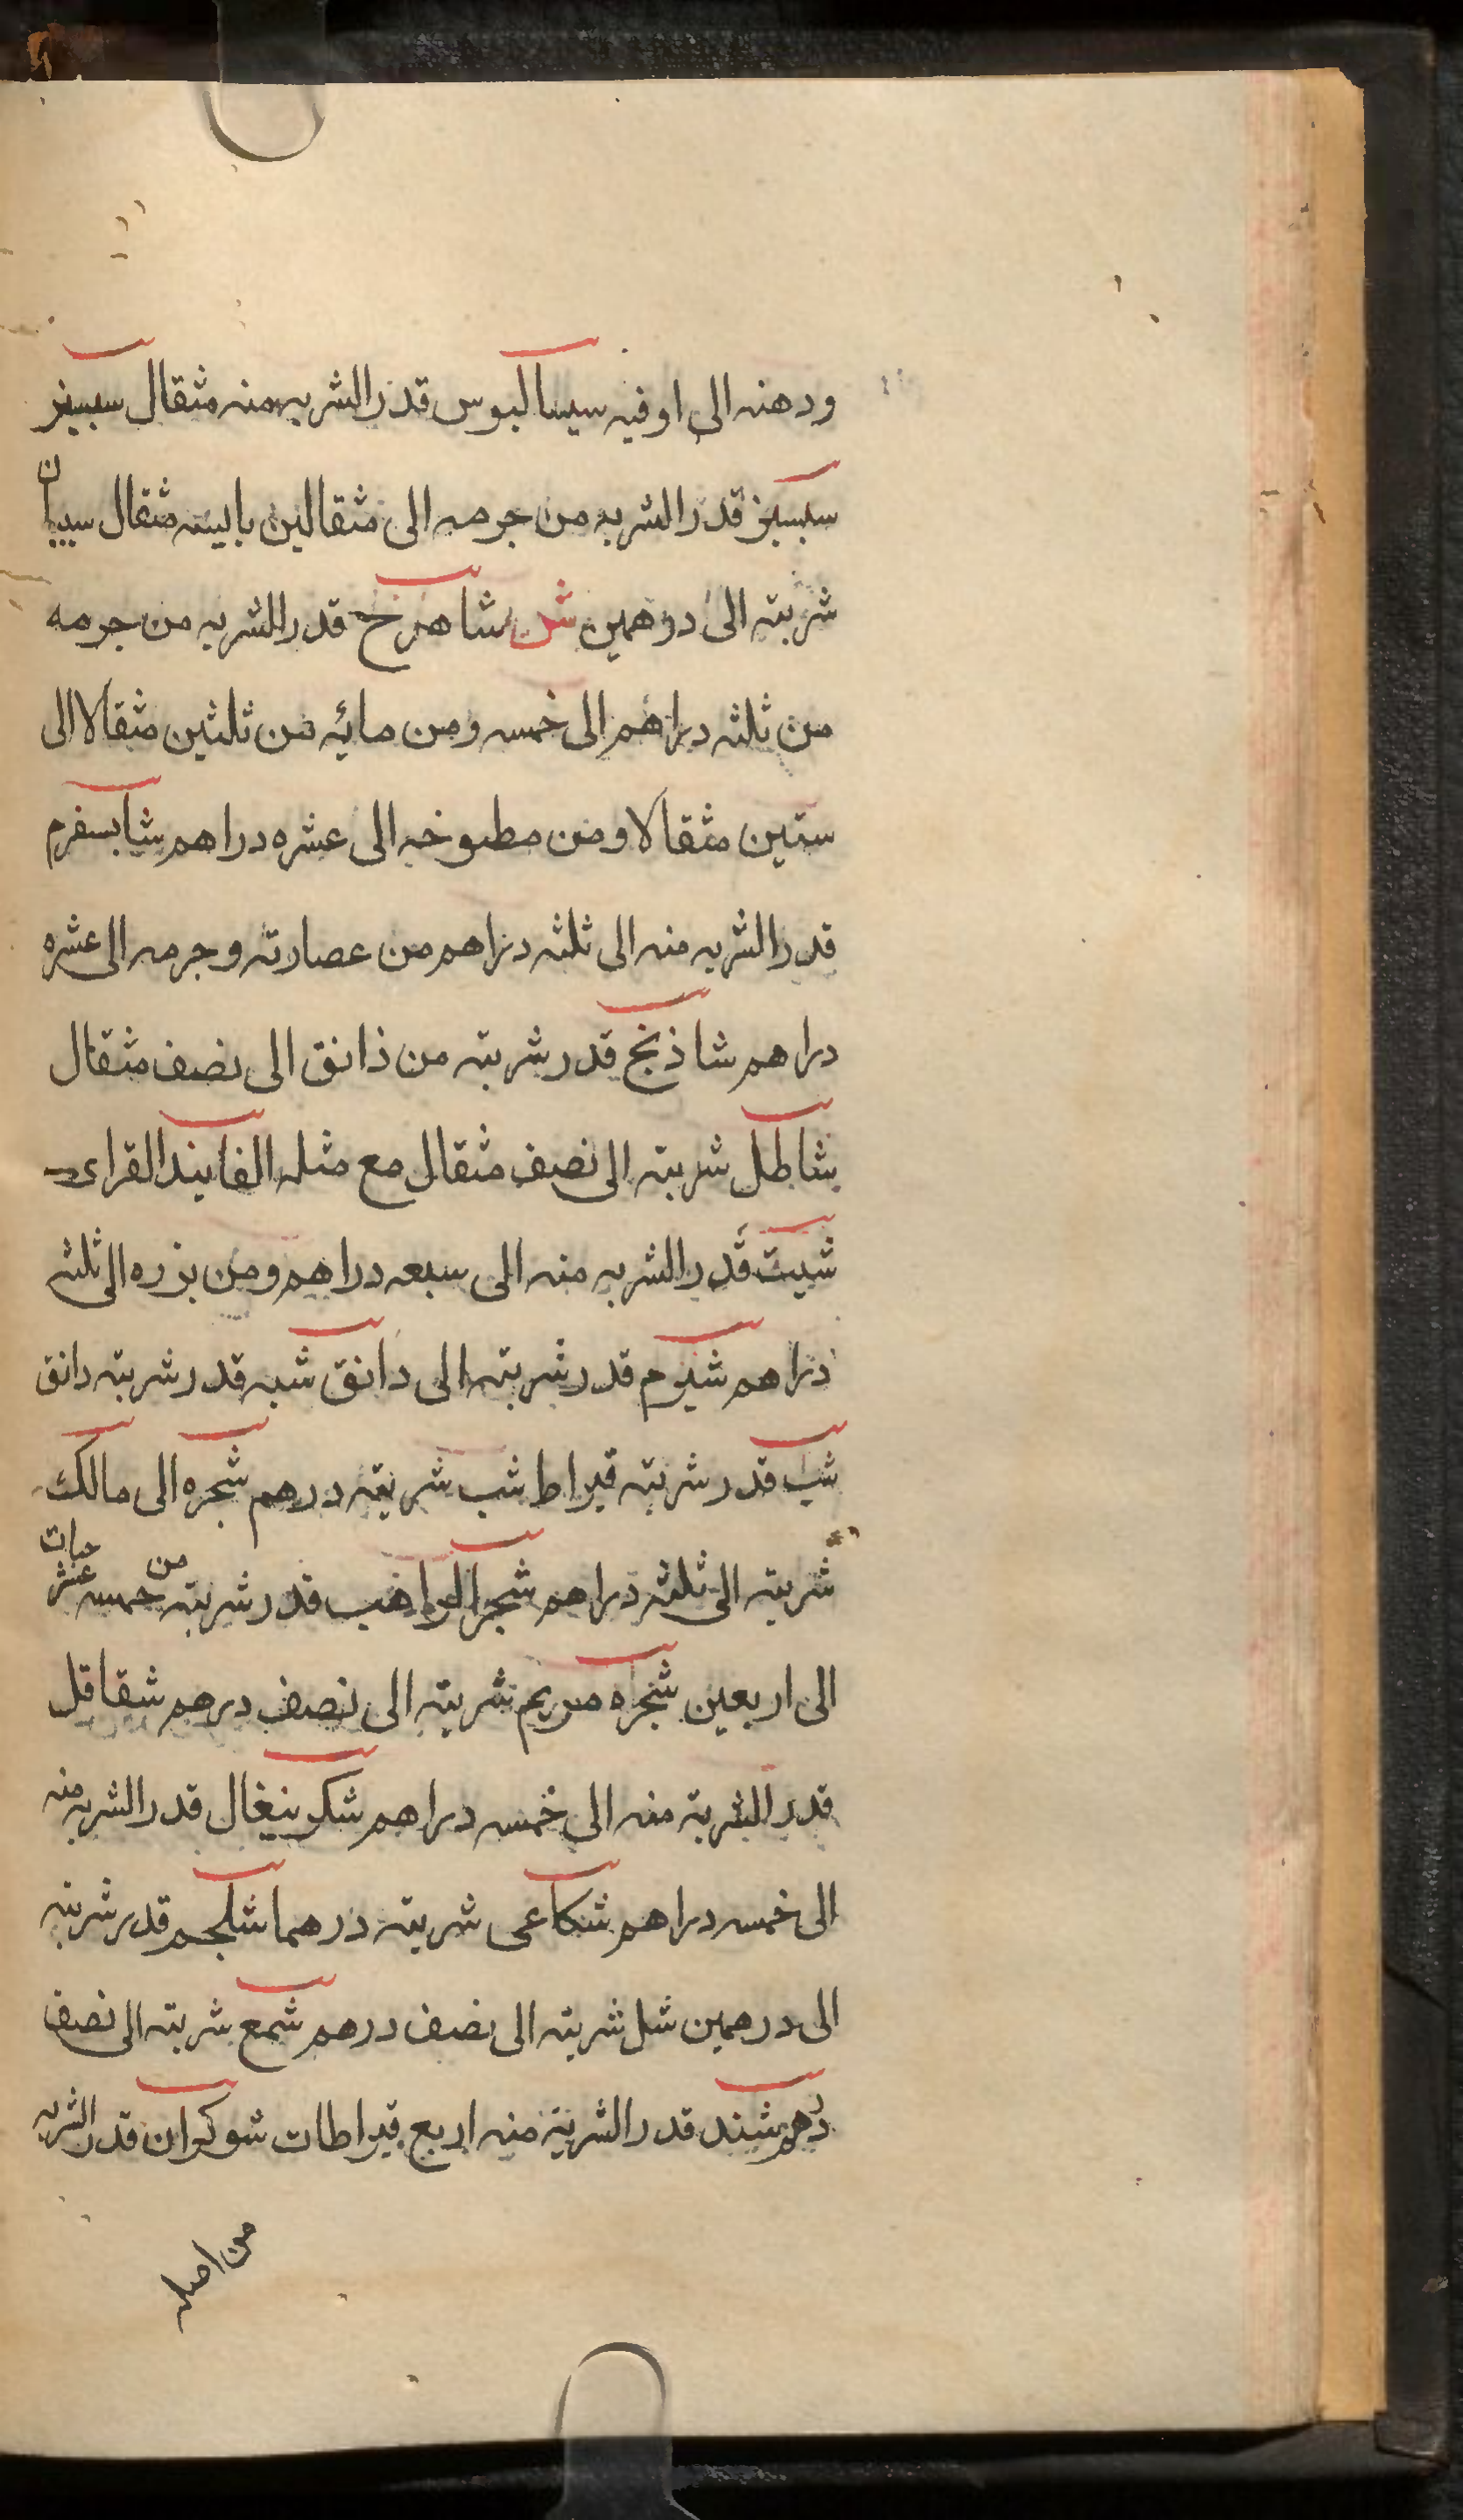 ودهنه الى اوقيه سيساليوس قدر الشربه منه مثقال سبستز
سيسبز قدر الشربه من جرمه الى مثقالين يابسه مثقال سيبان
شربته الى درهمين ش شاهترج قدر الشربه من جرمه
من ثلثه دراهم الى خمسه ومن مائه من ثلثين مثقالا الى
ستين مثقالا ومن مطبوخه الى عشره دراهم شابسفرم
قدر الشربه منه الى ثلثه دراهم من عصارته وجرمه الى عشره
دراهم شاذنج قدر شربته من دانق الى نصف مثقال
شاطل شربته الى نصف مثقال مع مثله الفانيد القراى
شبت قدر الشربه منه الى سبعه دراهم ومن بزره الى ثلثه
دراهم شبرم قدر شربته الى دانق شبه قدر شربته دانق
شب قدر شربته قيراط شب شربته درهم شجره الى مالك
شربته الى ثلثه دراهم شجر الراهب قدر شربته من خمسه عشر حبات
الى اربعين شجره مريم شربته الى نصف درهم شقاقل
قدر الشربة منه الى خمسه دراهم شكربنغال قدر الشربه منه
الى خمسه دراهم شكاعى شربته درهما شلجم قدر شربته
الى درهمين شل شربته الى نصف درهم شمع شربته الى نصف
درهم شند قدر الشربة منه اربع قيراطات شوكران قدر الشربه
من اصله